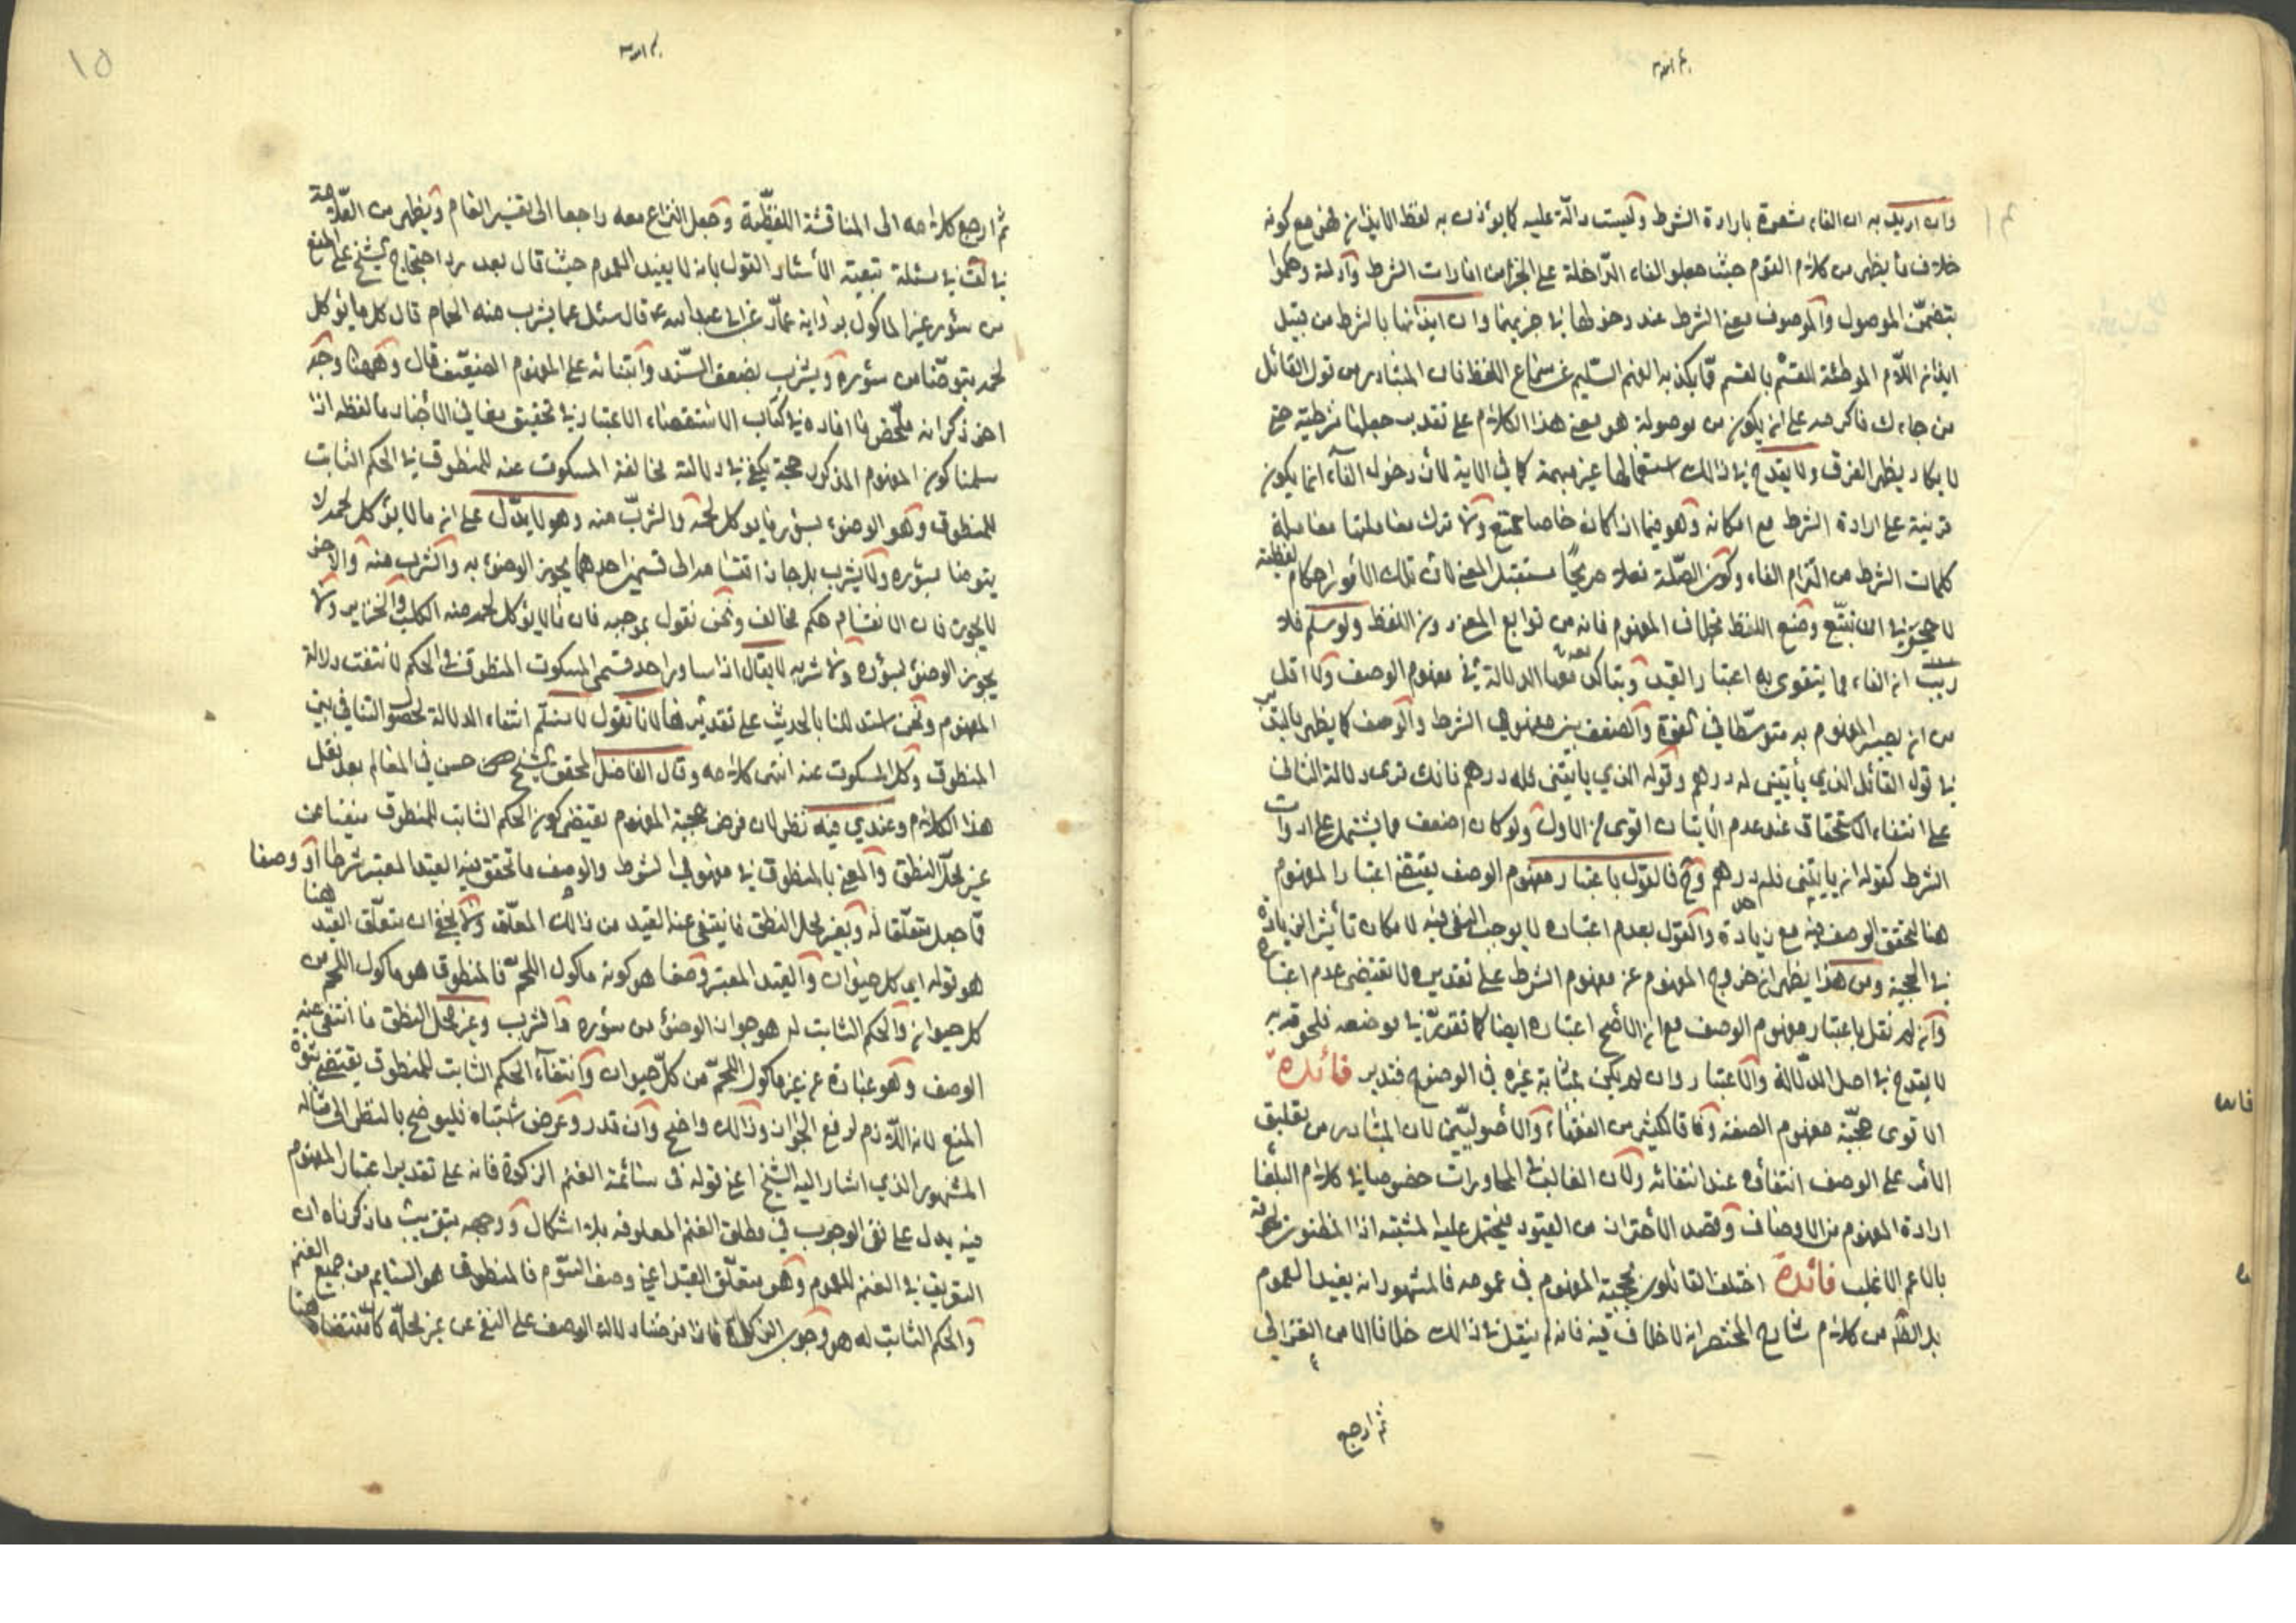 وان اريد به ان الفاء مشعرة بارادة الشرط وليست دالّة عليه كما يؤذن به لفظ الايذان فهو مع كونه
خلاف ما يظهر من كلام القوم حيث جعلوا الفاء الدّاخلة على الجزاء من امارات الشرط وأدلته وحكموا
بتضمّن الموصول والموصوف معنى الشرط عند دخولها في خبريهما وان ايذانها بالشرط من قبيل
ايذان اللّام الموطئة للقسم بالقسم ممّا يكذبه الفهم السّليم عند سماع اللفظ فان المتبادر من قول القائل
من جاءك فاكرمه على ان يكون من موصولة هو معنى هذا الكلام على تقدير جعلها شرطية حتى
لا يكاد يظهر الفرق ولا يقدح في ذلك استعمالها غير مبهمة كما في الاية لأن دخول الفآء انما يكون
قرينة على ارادة الشرط مع امكانه وهو فيما اذا كان خاصا ممتنع ولا ترك معاملتها معاملة
كلمات الشرط من التزام الفاء وكون الصّلة فعلا صريحاً مستقبل المعنى لان تلك الأمور احكام لفظية
لا حجر في ان تتبّع وضع اللفظ بخلاف المفهوم فانه من توابع المعنى دون اللفظ ولو سلم فلا
ريب ان الفاء مما يتقوى به اعتبار القيد ويتاكد معها الدلالة في مفهوم الوصف ولا اقل
من ان يصير المفهوم به متوسّطا في القوة والضعف بين مفهومي الشرط والوصف كما يظهر بالتدبّر
في قول القائل الذي يأتيني له درهم وقوله الذي يأتيني فله درهم فانك ترى دلالة الثاني
على انتفاء الاستحقاق عند عدم الأتيان اقوى من الاول ولو كان اضعف مما يشتمل على ادوات
الشرط كقوله ان ياتيني فله درهم وح فالقول باعتبار مفهوم الوصف يقتضي اعتبار المفهوم
هنا لتحقق الوصف فيه مع زيادة والقول بعدم اعتباره لا يوجب النفي فيه لامكان تأثير الزيادة
في الحجية ومن هذا يظهر ان خروج المفهوم عن مفهوم الشرط على تقديره لا يقتضي عدم اعتباره
وان لم نقل باعتبار مفهوم الوصف مع ان الأصح اعتباره ايضا كما تقدّر في موضعه فلحوقه به
لا يقدح في اصل الدلالة والاعتبار وان لم يكن بمثابة غيره في الوضوح فتدبر فائدة
الاقوى حجيّة مفهوم الصفة وفاقا لكثير من الفقهاء والأصوليّين لان المتبادر من تعليق
الأمر على الوصف انتفاؤه عند انتفائه ولأن الغالب في المحاورات خصوصا في كلام البلغا
ارادة المفهوم من الاوصاف وقصد الأحتراز من القيود فيحمل عليه المشتبه اذ المظنون لحوقه
بالاعم الاغلب فائدة اختلف القائلون بحجية المفهوم في عمومه فالمشهور انه يفيد العموم
بل الظّ من كلام شارح المختصر انه لا خلاف فيه فانه لم ينقل في ذلك خلافا الا من الغزالي
ثم ارجع
١٥
ثم ارجع كلامه الى المناقشة اللفظيّة وجعل النزاع معه راجعا الى تفسير العام ويظهر من العلّامة
في لف في مسئلة تبعية الأسئار القول بانه لا يفيد العموم حيث قال بعد رد احتجاج الشيخ على المنع
من سؤر غير الماكول برواية عمّار عن ابي عبدالله ع قال سئل عما يشرب منه الحمام قال كل ما يؤكل
لحمه يتوضّا من سؤره ويشرب بضعف السّند وابتنائه على المفهوم الضعيف قال وههنا وجه
اخر ذكرانه ملخّص ما افاده في كتاب الاستقصاء الاعتبار في تحقيق معاني الأخبار ما لفظه اذا
سلمنا كون المفهوم المذكور حجة يكفي في دلالته مخالفة المسكوت عنه للمنطوق في الحكم الثابت
للمنطوق وهو الوضوء بسؤر ما يوكل لحمه والشرب منه وهو لا يدّل على ان ما لا يؤكل لحمه لا
يتوضا بسؤره ولا يشرب بل جاز اقتسامه الى قسمين احدهما يجوز الوضوء به والشرب منه والاخر
لا يجوز فان الانقسام حكم مخالف ونحن نقول بموجبه فان ما لا يؤكل لحمه منه الكلب والخنزير ولا
يجوز الوضوء بسؤره ولا شربه لا يقال اذا ساوى احد قسمى المسكوت المنطوق في الحكم لانتفت دلالة
المفهوم ونحن استدللنا بالحديث على تقديرها لانا نقول لا نسلّم انتفاء الدلالة لحصول التنافي بين
المنطوق وكل المسكوت عنه انتهى كلامه وقال الفاضل المحقق الشيخ حسن في المعالم بعد نقل
هذا الكلام وعندي فيه نظر لان فرض حجية المفهوم يقتضي كون الحكم الثابت للمنطوق منفيا عن
غير محلّ النطق والمعنى بالمنطوق في مفهومي الشرط والوصف ما تحقق فيه القيد المعتبر شرطا أو وصفا
ممّا جعل متعلّقا له وبغير محل النطق ما ينتفي عنه القيد من ذلك المعلّق ولا يخفى ان متعلّق القيد هنا
هو قوله اي كل حيوان والقيد المعتبر وصفا هو كونه ماكول اللحم فالمنطوق هو ماكول اللحم من
كل حيوان والحكم الثابت له هو جواز الوضوء من سؤره والشرب وغير محل النطق ما انتفى عنه
الوصف وهو عبارة عن غير ماكول اللحم من كلّ حيوان وانتفآء الحكم الثابت للمنطوق يقتضي ثبوت
المنع لانه اللّازم لرفع الجواز وذلك واضح وان قدر وعرض اشتباه فليوضح بالنظر الى مثاله
المشهور الذي اشار اليه الشيخ اعني قوله في سائمة الغنم الزكوة فانه على تقدير اعتبار المفهوم
فيه يدل على نفي الوجوب في مطلق الغنم المعلوفه بلا اشكال ووجهه بتقريب ما ذكرناه ان
التعريف في الغنم للعموم وهو متعلّق القيد اعني وصف السّوم فالمنطوق هو السّايم من جميع الغنم
والحكم الثابت له هو وجوب الزكاة فاذا فرضنا دلالة الوصف على النفي عن غير محلّه كا مقتضاه هنا